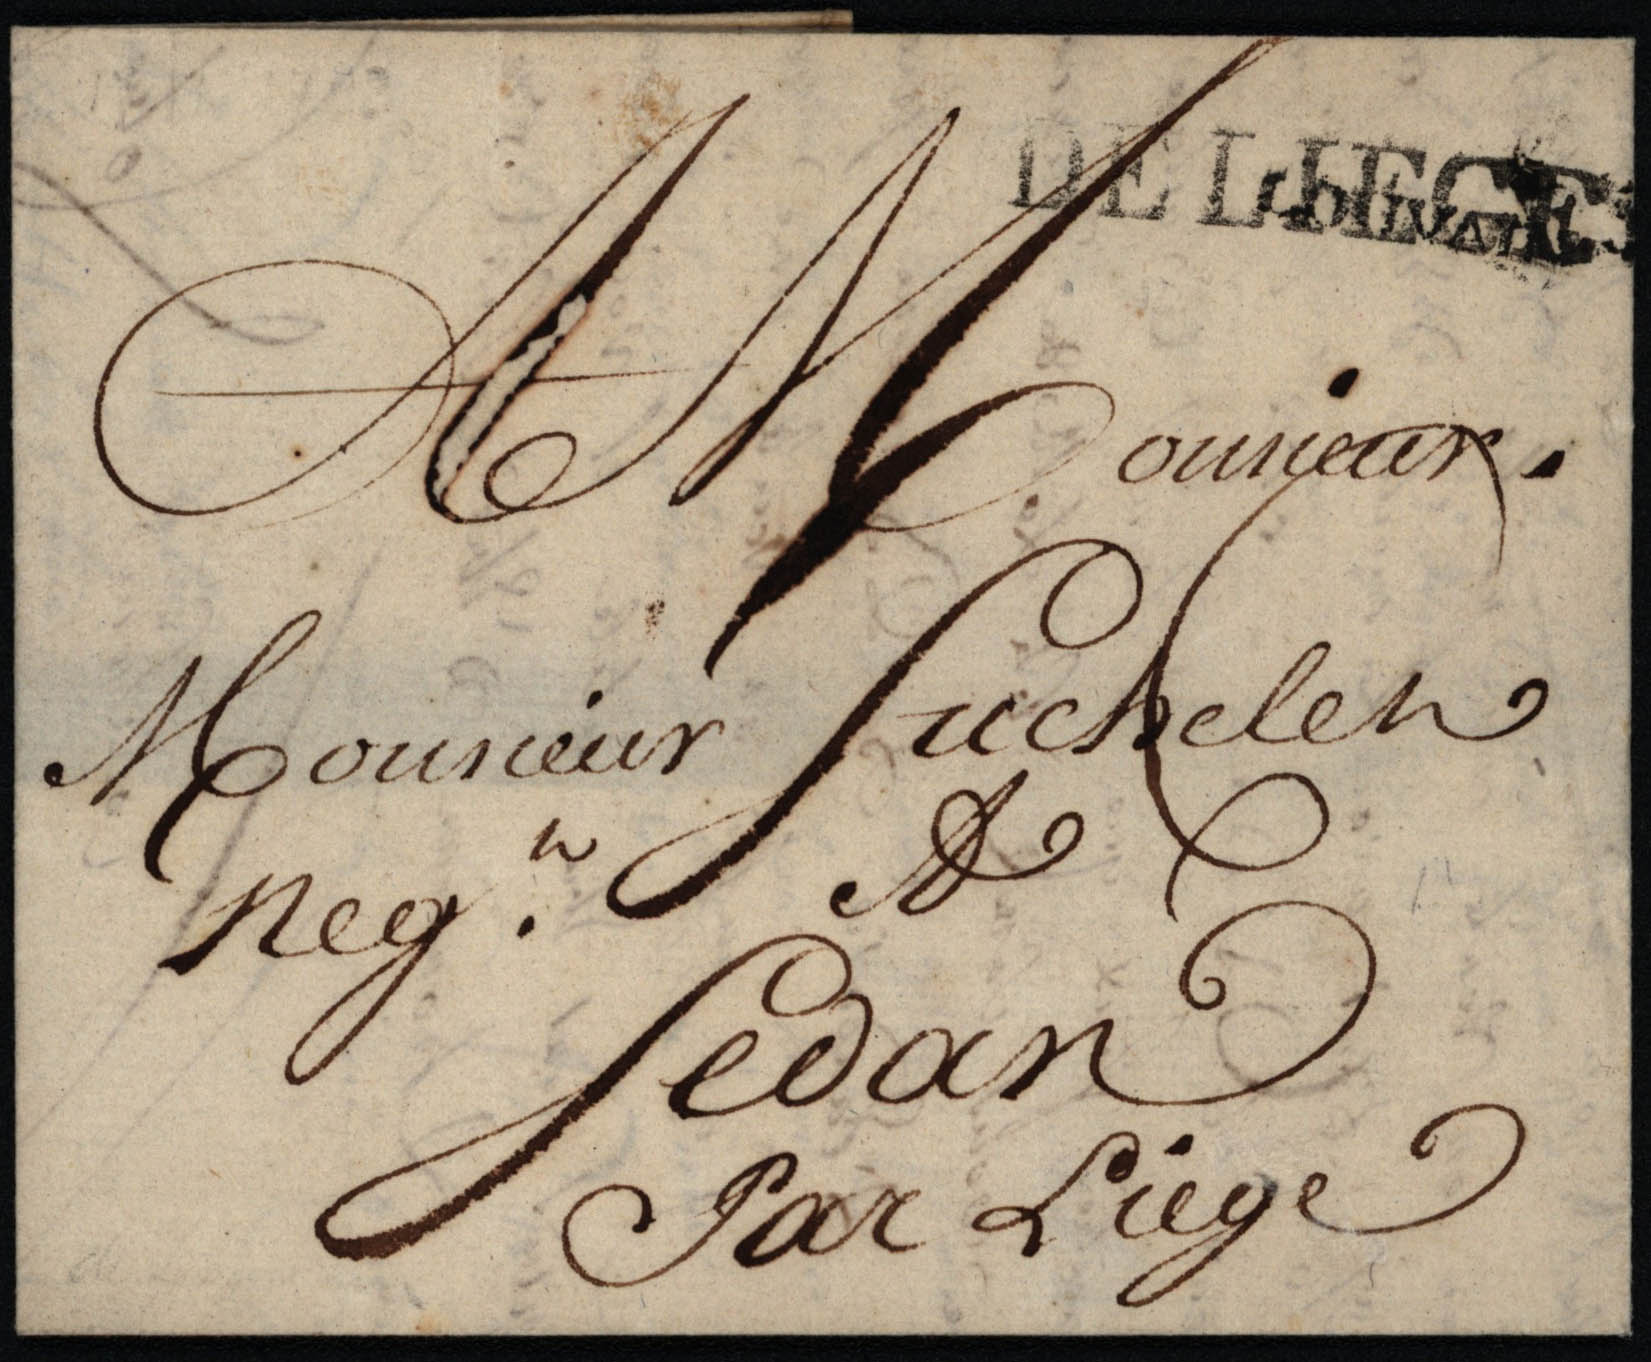 DE LIEGE
A Monsieur.
Monsieur Suchelen
Neg.n A
Sedan
Par Liege